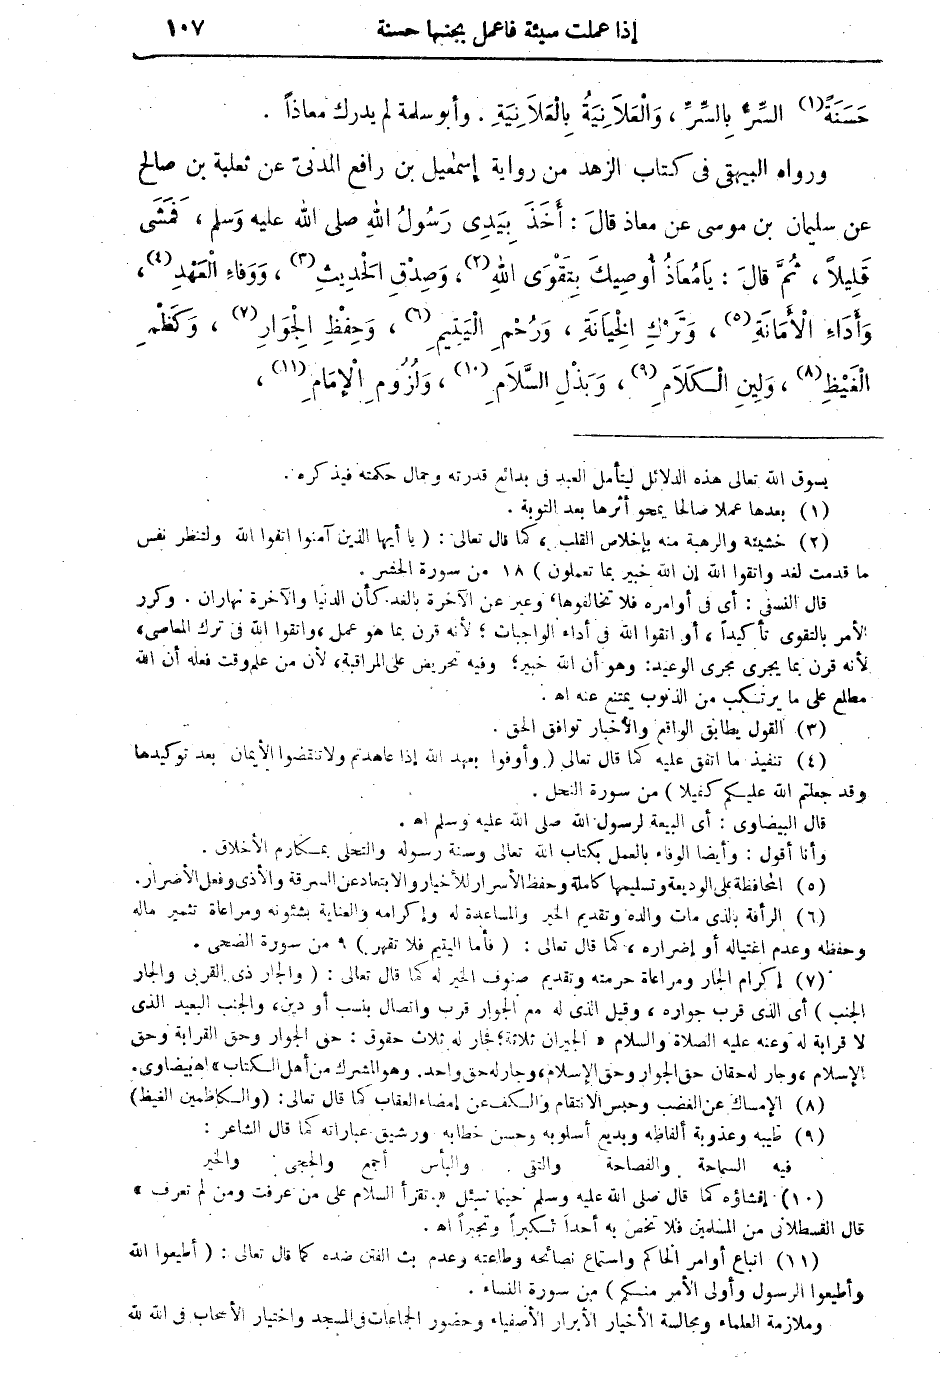 إذا عملت سيئة فاعمل بجنبها حسنة ١٠٧
حَسَنَةً(١) السِّرُّ بِالسِّرِّ ، وَالْعَلاَنِيَةُ بِالْعَلاَنِيَةِ . وأبو سلمة لم يدرك معاذاً .
ورواه البيهقى فى كتاب الزهد من رواية إسمعيل بن رافع المدنىّ عن ثعلبة بن صالح
عن سليمان بن موسى عن معاذ قالَ : أَخَذَ بِيَدِى رَسُولُ اللهِ صلى الله عليه وَسلم ، فَمَشَى
قَلِيلاً ، ثُمَّ قالَ : يَامُعَاذُ أُوصِيكَ بِتَقْوَى اللهِ(٢)، وَصِدْقِ الْحَدِيثِ(٣)، وَوَفَاءِ الْعَهْدِ(٤)،
وَأَدَاءِ الْأَمَانَةِ(٥) ، وَتَرْكِ الْخِيَانَةِ ، وَرُحْمِ الْيَتِيمِ(٦) ، وَحِفْظِ الْجِوَارِ(٧) ، وَكَظْمِ
الْغَيْظِ(٨) ، وَلِينِ الْكَلاَمِ(٩) ، وَبَذْلِ السَّلاَمِ(١٠) ، وَلُزُومِ الْإِمَامِ(١١) ،
يسوق الله تعالى هذه الدلائل ليتأمل العبد فى بدائع قدرته وجمال حكمته فيذكره .
(١) بعدها عملا صالحا يمحو أثرها بعد التوبة .
(٢) خشيئة والرهبة منه بإخلاص القلب ، كما قال تعالى : ( يا أيها الذين آمنوا اتقوا الله ولتنظر نفس
ما قدمت لغد واتقوا الله إن الله خبير بما تعملون ) ١٨ من سورة الحشر .
قال النسفى : أى فى أوامره فلا تخالفوها، وعبر عن الآخرة بالغد كأن الدنيا والآخرة نهاران . وكرر
الأمر بالتقوى تأكيداً ، أو اتقوا الله فى أداء الواجبات ؛ لأنه قرن بما هو عمل ، واتقوا الله فى ترك المعاصى،
لأنه قرن بما يجرى مجرى الوعيد: وهو أن الله خبير؛ وفيه تحريض على المراقبة، لأن من علم وقت فعله أن الله
مطلع على ما يرتكب من الذنوب يمتنع عنه اه .
(٣) القول يطابق الواقع والأخبار توافق الحق .
(٤) تنفيذ ما اتفق عليه كما قال تعالى ( وأوفوا بعهد الله إذا عاهدتم ولا تنقضوا الأيمان بعد توكيدها
وقد جعلتم الله عليكم كفيلا ) من سورة النحل .
قال البيضاوى : أى البيعة لرسول الله صلى الله عليه وسلم اه .
وأنا أقول : وأيضا الوفاء بالعمل بكتاب الله تعالى وسنة رسوله والتحلى بمكارم الأخلاق .
(٥) المحافظة على الوديعة وتسليمها كاملة وحفظ الأسرار للأخيار والابتعاد عن السرقة والأذى وفعل الأضرار.
(٦) الرأفة بالذى مات والده وتقديم الخير والمساعدة له وإكرامه والعناية بشئونه ومراعاة تثمير ماله
وحفظه وعدم اغتياله أو إضراره ، كما قال تعالى : ( فأما اليتيم فلا تقهر ) ٩ من سورة الضحى .
(٧) إكرام الجار ومراعاة حرمته وتقديم صنوف الخير له كما قال تعالى : ( والجار ذى القربى والجار
الجنب ) أى الذى قرب جواره ، وقيل الذى له مع الجوار قرب واتصال بنسب أو دين، والجنب البعيد الذى
لا قرابة له وعنه عليه الصلاة والسلام « الجيران ثلاثة؛ فجار له ثلاث حقوق : حق الجوار وحق القرابة وحق
الإسلام ، وجار له حقان حق الجوار وحق الإسلام، وجار له حق واحد. وهو المشرك من أهل الكتاب » اه بيضاوى.
(٨) الإمساك عن الغضب وحبس الانتقام والكف عن إمضاء العقاب كما قال تعالى: (والكاظمين الغيظ)
(٩) طيبه وعذوبة ألفاظه وبديع أسلوبه وحسن خطابه ورشيق عباراته كما قال الشاعر :
فيه السماحة والفصاحة والتقى والبأس أجمع والحجى والخير
(١٠) إفشاؤه كما قال صلى الله عليه وسلم حينما سئل « تقرأ السلام على من عرفت ومن لم تعرف »
قال القسطلانى من المسلمين فلا تخص به أحداً تكبراً وتجبراً اه .
(١١) اتباع أوامر الحاكم واستماع نصائحه وطاعته وعدم بث الفتن ضده كما قال تعالى : ( أطيعوا الله
وأطيعوا الرسول وأولى الأمر منكم ) من سورة النساء .
وملازمة العلماء ومجالسة الأخيار الأبرار الأصفياء وحضور الجماعات فى المسجد واختيار الأصحاب فى الله لله